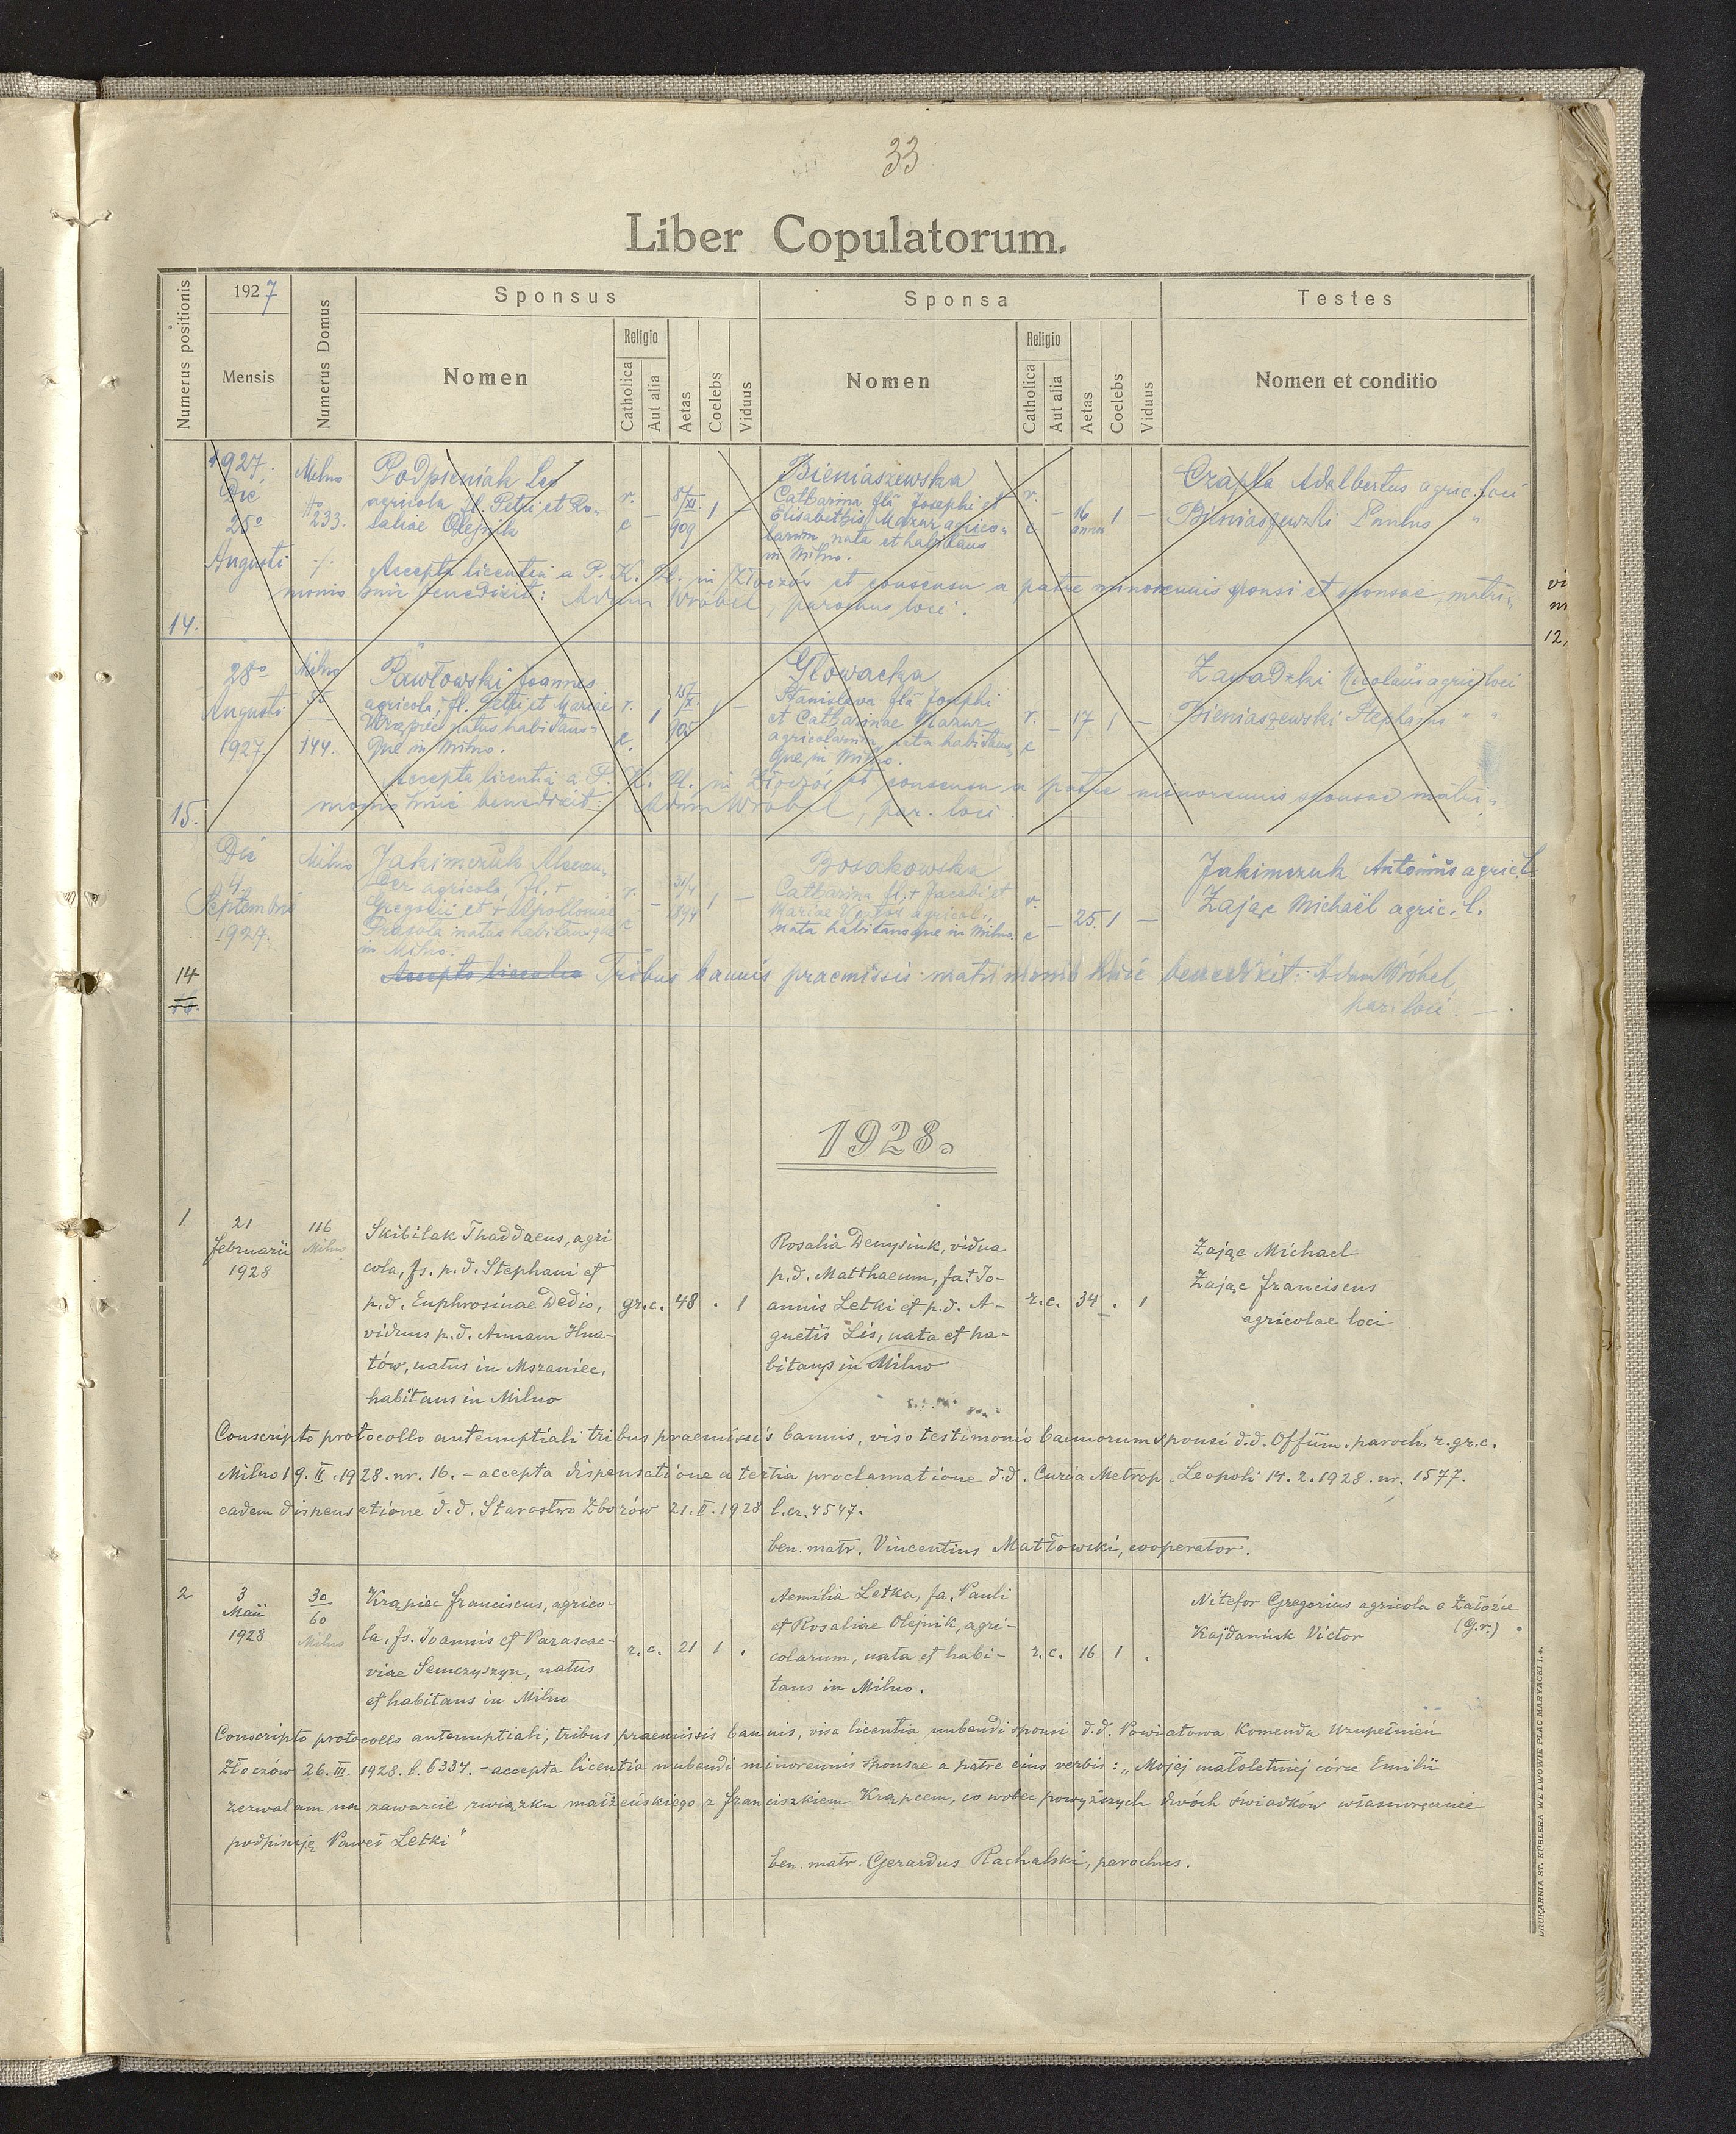 33
Liber Copulatorum.
Numerus positionis
1927
Mensis
Numerus Domus
Sponsus
Nomen
Religio
Catholica
Aut alia
Aetas
Coelebs
Viduus
Sponsa
Nomen
Religio
Catholica
Aut alia
Aetas
Coelebs
Viduus
Testes
Nomen et conditio
14.
1927.
Die
25º
Augusti
Milno
No
233.
Podpieniak Leo
agricola fl. Petri et Ro-
saliae Olejnik
r.
c
—
8/XI
909
1
—
Bieniaszewska
Catharina fla Josephi et
Elisabethis Mazur agrico-
larum, nata et habitans
in Milno.
r.
c
—
16
1
—
Czapla Adalbertus agric. loci
Bieniaszewski Paulus "
Accepta licentia a P. K. U. in Złoczów et consensu a patre minorennis sponsi et sponsae, matri-
monio huic benedixit: Adam Wróbel, parochus loci.
15.
28º
Augusti
1927.
Milno
55
144.
Pawłowski Joannes
agricola, fl. Petri et Mariae
Krąpiec natus habitans-
que in Milno.
r.
c.
1
905
—
Głowacka
Stanislava fla Josephi
et Catharinae Mazur
agricolarum, nata habitans-
que in Milno.
r.
c
—
17
1
—
Zawadzki Nicolaus agric. loci
Bieniaszewski Stephanus " "
Accepta licentia a P. K. U. in Złoczów et consensu a patre minorennis sponsae matri-
monio huic benedixit: Adam Wróbel, par. loci.
14
Die
4.
Septembris
1927.
Milno
Jakimczuk Alexan-
der agricola, fl. +
Gregorii et + Apolloniae
natus habitansque
in Milno.
r.
c
—
31/4
1894
1
—
Bosakowska
Catharina fl. + Jacobi et
Mariae agricol.,
nata habitansque in Milno.
r.
c
—
25.
1
—
Jakimczuk Antonius agric. l.
Zając Michaël agric. l.
Accepta licentia Tribus bannis praemissis matrimonio huic benedixit: Adam Wróbel,
par. loci. —
1928.
1
21
Februarii
1928
116
Milno
Skibilak Thaddaeus, agri
cola, fs. p.d. Stephani et
p.d. Euphrosinae Dedio,
viduus p.d. Annam Hna-
tów, natus in Mszaniec,
habitans in Milno
gr.c.
48
.
1
Rosalia Denysiuk, vidua
p.d. Matthaeum, fa. + Jo-
annis Letki et p.d. A-
gnetis Lis, nata et ha-
bitans in Milno
r.c.
34
.
1
Zając Michael
Zając Franciscus
agricolae loci
Conscripto protocollo antenuptiali tribus praemissis bannis, viso testimonio bannorum sponsi d.d. Offum. paroch. r. gr. c.
Milno 19.II.1928. nr. 16. - accepta dispensatione a tertia proclamatione d.d. Curia Metrop. Leopoli 14.2.1928. nr. 1577.
eadem dispensatione d.d. Starostwo Zborów 21.II.1928 l.cz. 4547.
ben. matr. Vincentius Matłowski, cooperator.
2
3
Maii
1928
30
60
Milno
Krąpiec Franciscus, agrico-
la, fs. Joannis et Parascae-
viae Semczyszyn, natus
et habitans in Milno
r.c.
21
1
.
Aemilia Letka, fa. Pauli
et Rosaliae Olejnik, agri-
colarum, nata et habi-
tans in Milno.
r.c.
16
1
.
Nitefor Gregorius agricola e Załoźce
(G.r.)
Kajdaniuk Victor
Conscripto protocollo antenuptiali, tribus praemissis bannis, visa licentia nubendi sponsi d.d. Powiatowa Komenda Uzupełnień
Złoczów 26.III.1928. l. 6334. - accepta licentia nubendi minorennis sponsae a patre eius verbis: „Mojej małoletniej córce Emilii
zezwalam na zawarcie związku małżeńskiego z Franciszkiem Krąpcem, co wobec powyższych dwóch świadków własnoręcznie
podpisuję Paweł Letki"
ben. matr. Gerardus Rachalski, parochus.
vi
m
12,
DRUKARNIA ST. KÖBLERA WE LWOWIE PLAC MARYACKI L. 4.